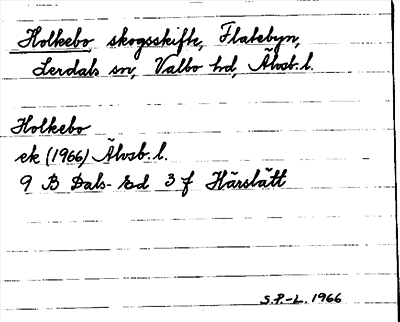 Holkebo, skogsskifte, Flatebyn,
Lerdals sn, Valbo hd, Älvsb. l.
Holkebo
ek (1966) Älvsb. l.
9 B Dals-Ed 3 f Härslätt
S.P.-L. 1966